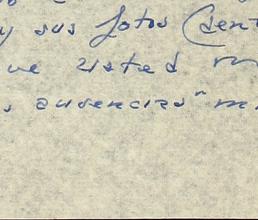 y sus fotos (sen
ue usted m
s ausencias" m